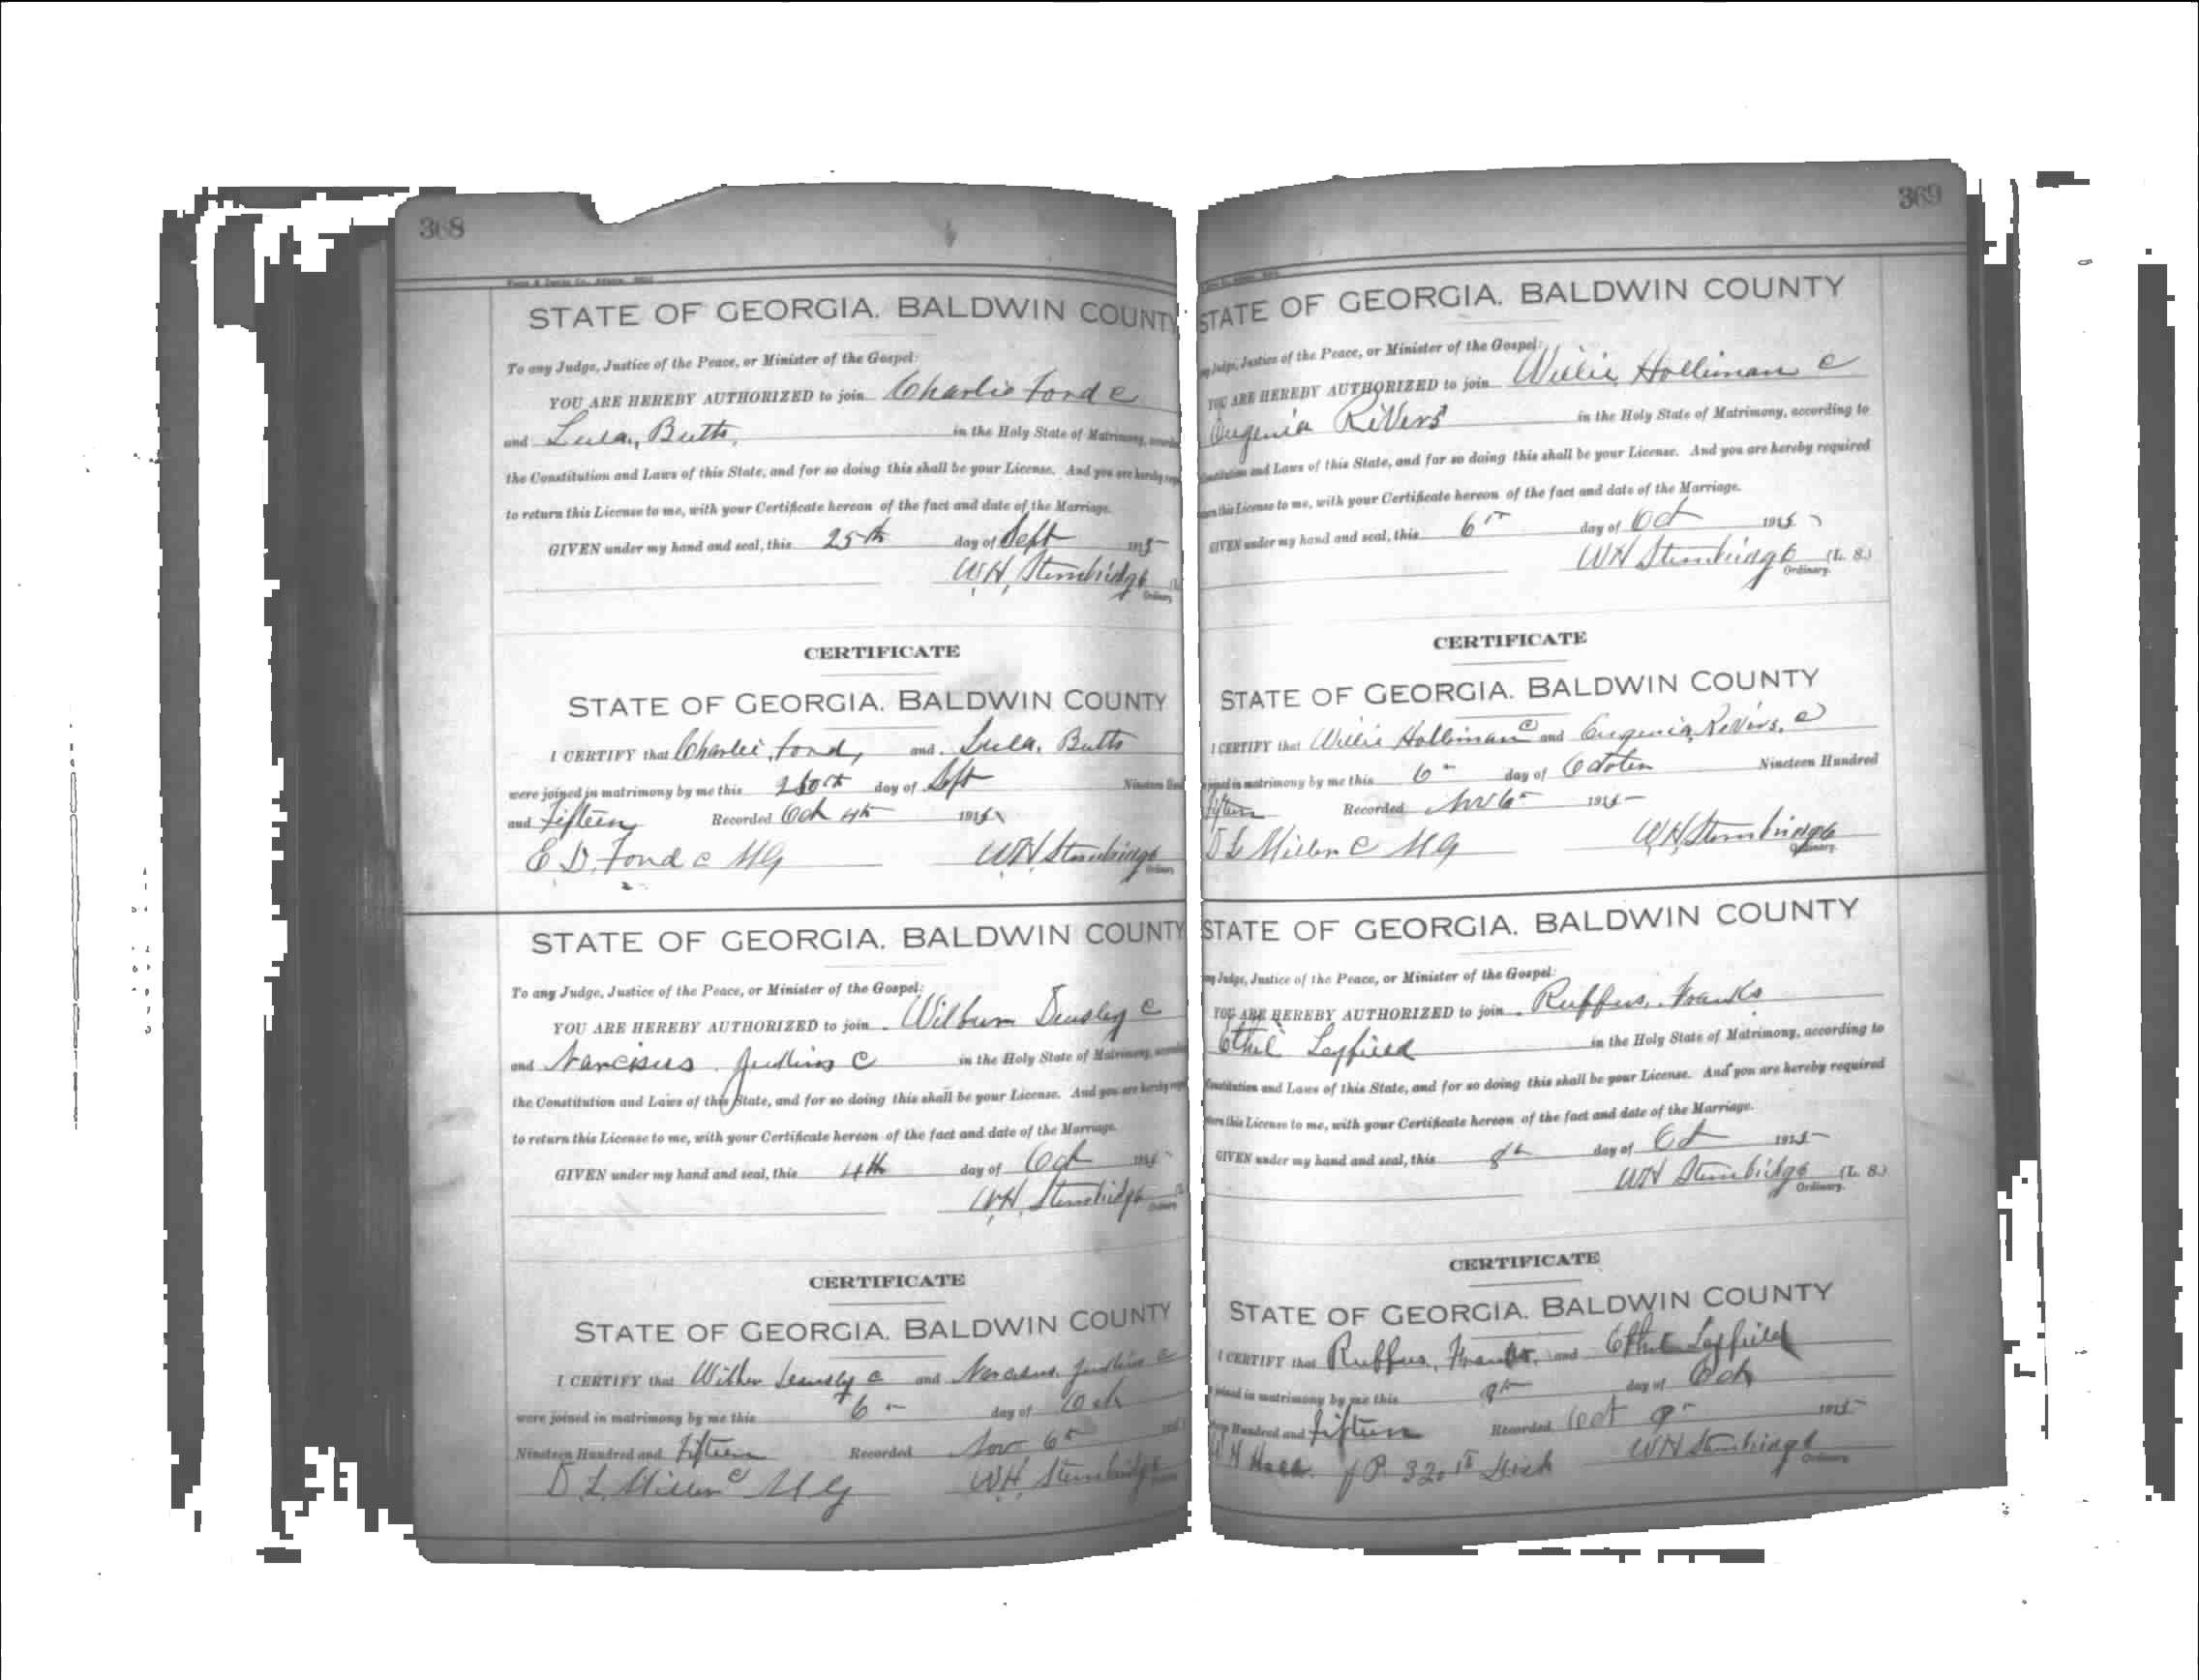 368
STATE OF GEORGIA. BALDWIN COUNTY
To any Judge, Justice of the Peace, or Minister of the Gospel:
YOU ARE HEREBY AUTHORIZED to join Charlie Ford c
and Lula, Butts, in the Holy State of Matrimony,
the Constitution and Laws of this State, and for so doing this shall be your License. And you are hereby
to return this License to me, with your Certificate hereon of the fact and date of the Marriage.
GIVEN under my hand and seal, this 25th day of Sept 1915
W.H. Stembridge
Ordinary
CERTIFICATE
STATE OF GEORGIA. BALDWIN COUNTY
I CERTIFY that Charlie, Ford, and Lula. Butts
were joined in matrimony by me this day of Sept Nineteen
and Fifteen Recorded Oct 4th 1915
E. D. Ford c MG W.H. Stembridge
Ordinary
STATE OF GEORGIA. BALDWIN COUNTY
To any Judge, Justice of the Peace, or Minister of the Gospel:
YOU ARE HEREBY AUTHORIZED to join Wilburn c
and c in the Holy State of Matrimony,
the Constitution and Laws of this State, and for so doing this shall be your License. And you are hereby
to return this License to me, with your Certificate hereon of the fact and date of the Marriage.
GIVEN under my hand and seal, this 4th day of Oct 1915
W.H. Stembridge
Ordinary
CERTIFICATE
STATE OF GEORGIA. BALDWIN COUNTY
I CERTIFY that c and c
were joined in matrimony by me this 6 day of Oct
Nineteen Hundred and Fifteen Recorded Nov 6th
D. L. Miller c MG W.H. Stembridge
369
STATE OF GEORGIA. BALDWIN COUNTY
Judge, Justice of the Peace, or Minister of the Gospel:
YOU ARE HEREBY AUTHORIZED to join Willie Holliman c
Eugenia Rivers in the Holy State of Matrimony, according to
Constitution and Laws of this State, and for so doing this shall be your License. And you are hereby required
this License to me, with your Certificate hereon of the fact and date of the Marriage.
GIVEN under my hand and seal, this 6th day of Oct 1915
WH Stembridge (L. S.)
Ordinary.
CERTIFICATE
STATE OF GEORGIA. BALDWIN COUNTY
I CERTIFY that Willie Holliman c and Eugenia, Rivers, c
joined in matrimony by me this 6 day of October Nineteen Hundred
fifteen Recorded Nov 6 1915
D L Miller C MG W.H. Stembridge
Ordinary.
STATE OF GEORGIA. BALDWIN COUNTY
Judge, Justice of the Peace, or Minister of the Gospel:
YOU ARE HEREBY AUTHORIZED to join Ruffus, Franks
Ethel Layfield in the Holy State of Matrimony, according to
Constitution and Laws of this State, and for so doing this shall be your License. And you are hereby required
this License to me, with your Certificate hereon of the fact and date of the Marriage.
GIVEN under my hand and seal, this 8th day of Oct 1915
WH Stembridge (L. S.)
Ordinary.
CERTIFICATE
STATE OF GEORGIA. BALDWIN COUNTY
I CERTIFY that Ruffus, Franks, and Ethel Layfield
joined in matrimony by me this 9th day of Oct
Hundred and Fifteen Recorded Oct 9 1915
Hall. JP 320th Dist WH Stembridge
Ordinary